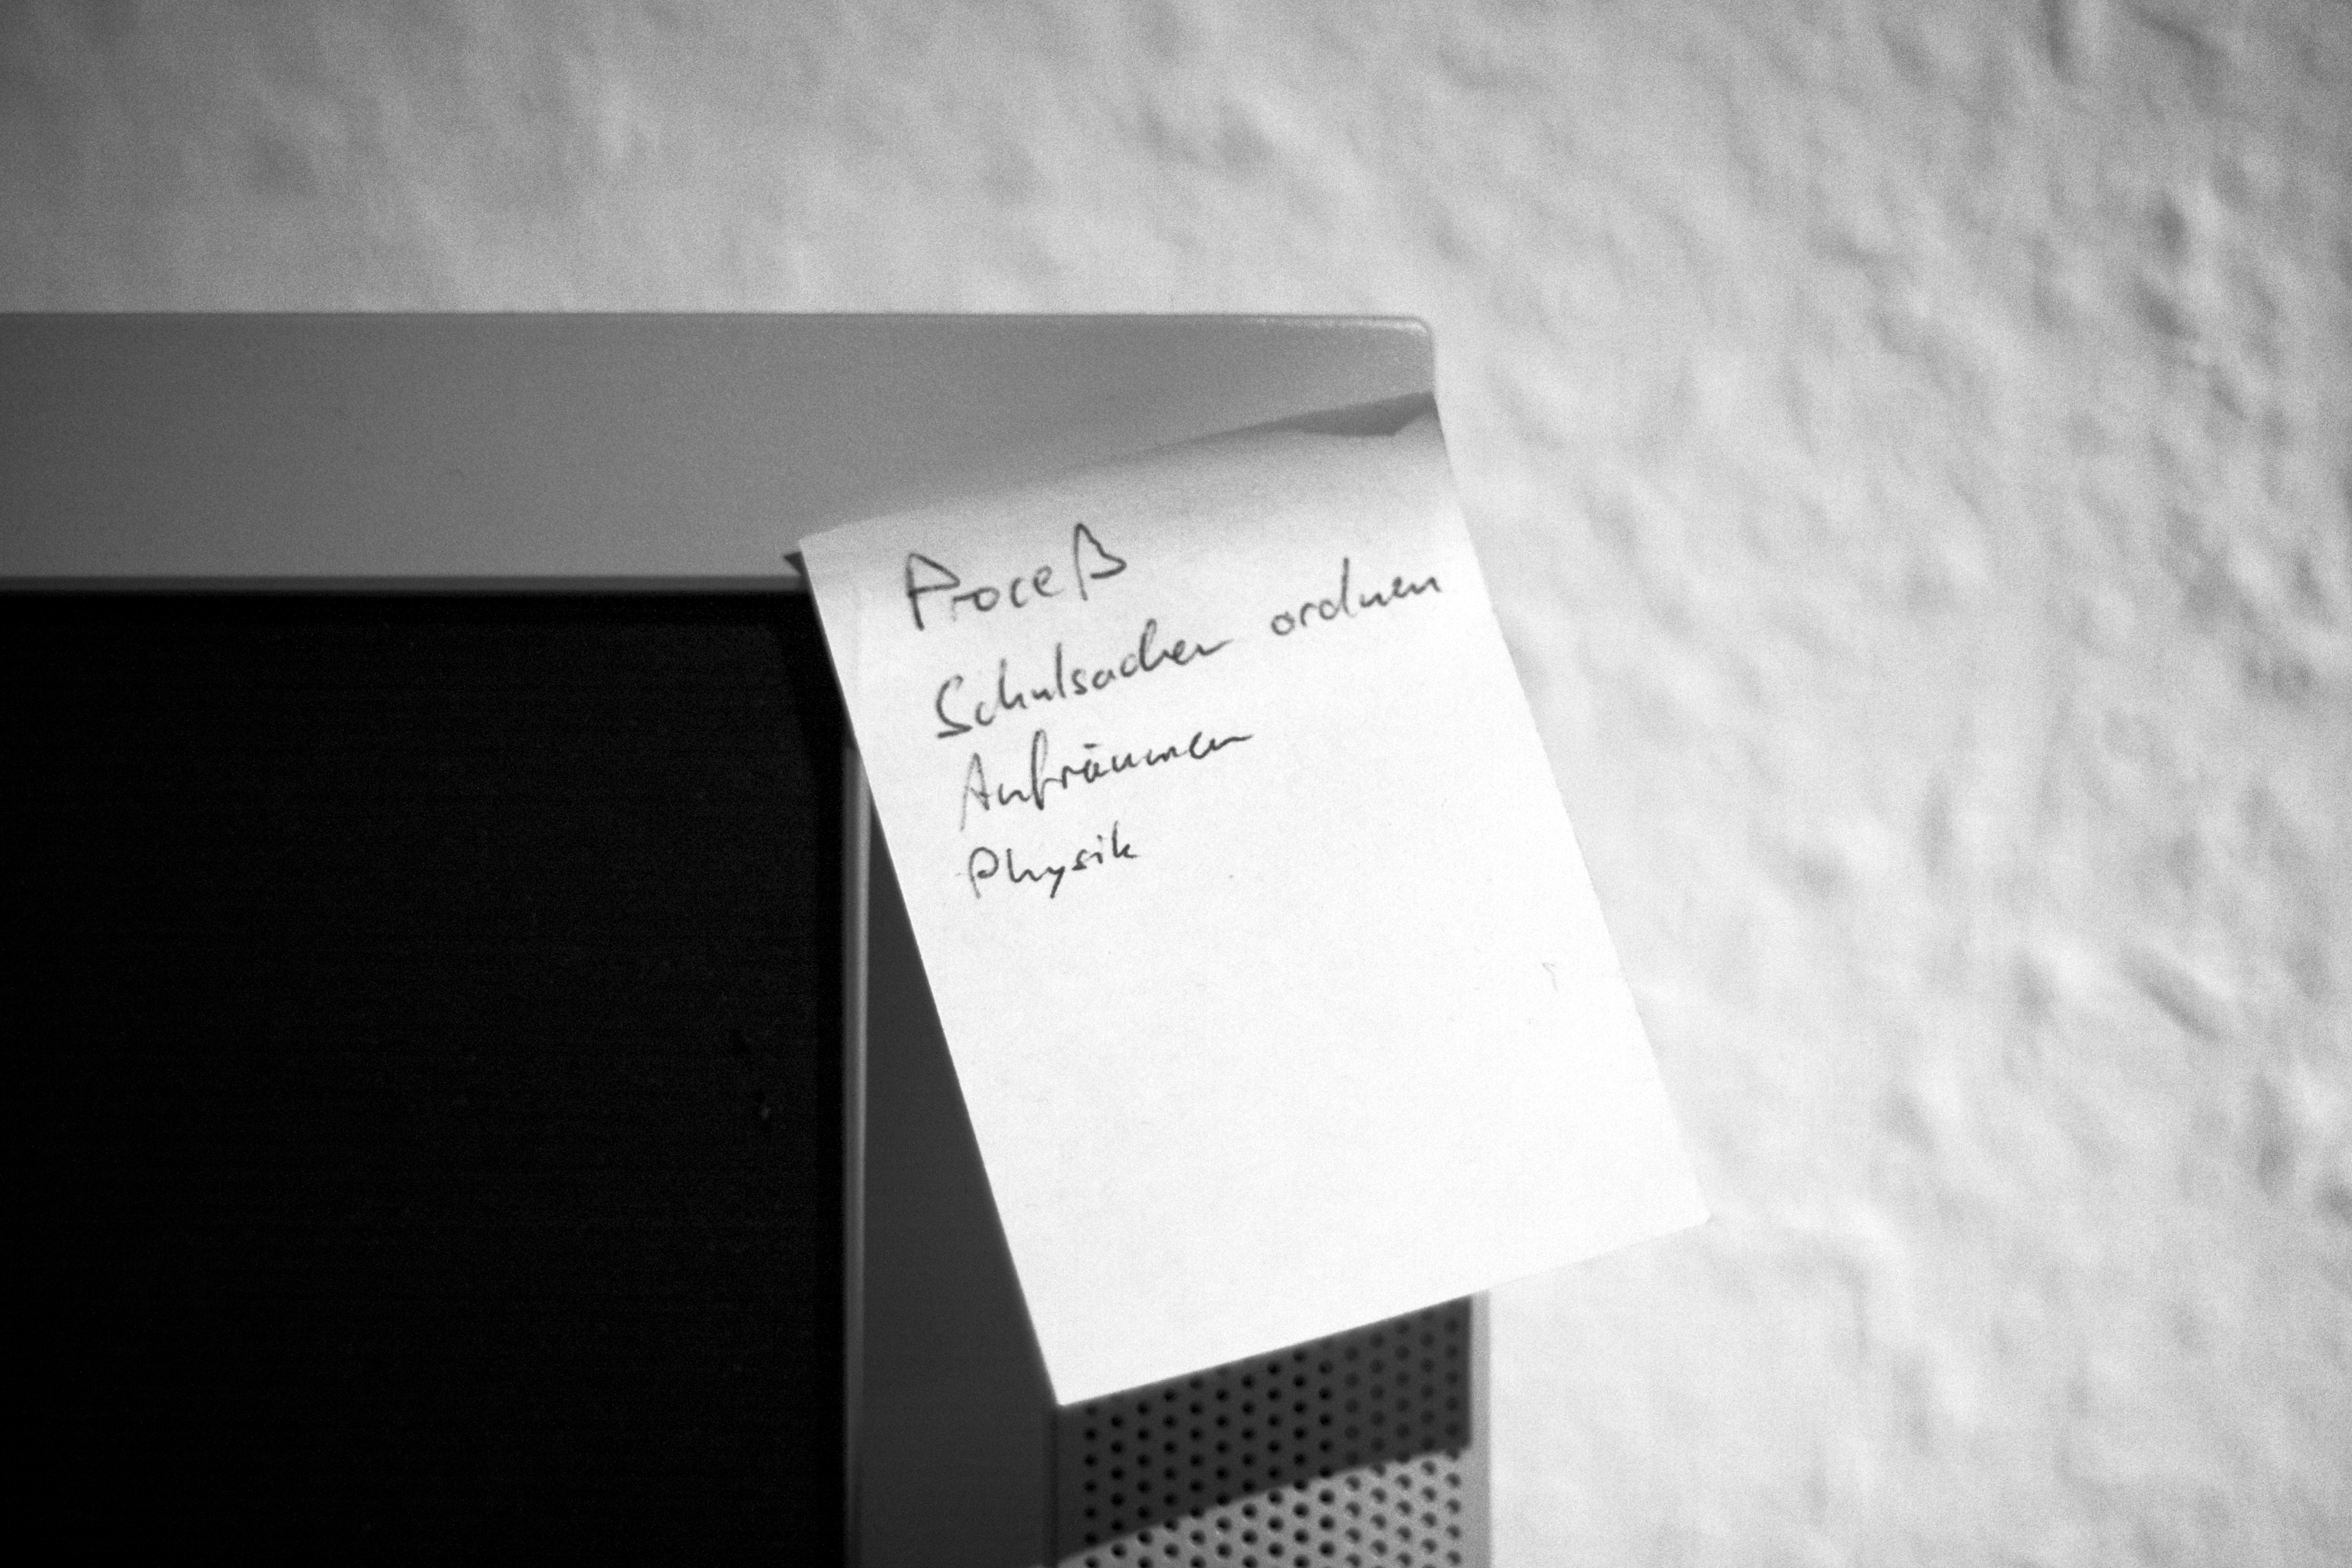 Proceß
Schulsachen ordnen
Aufräumen
Physik